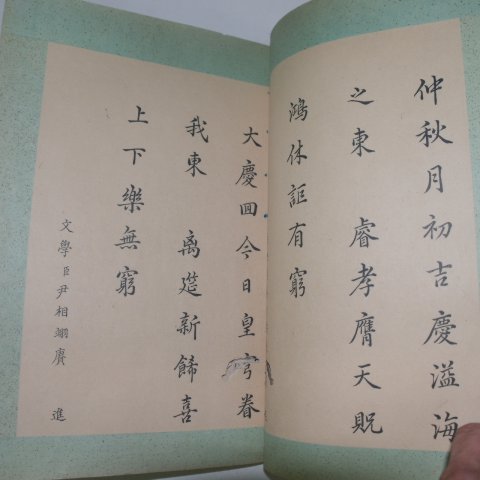 仲秋月初吉慶溢海
之東 睿孝膺天貺
鴻休詎有窮
大慶回今日皇穹眷
我東 离筵新飾喜
上下樂無窮
文學臣尹相翊賡 進